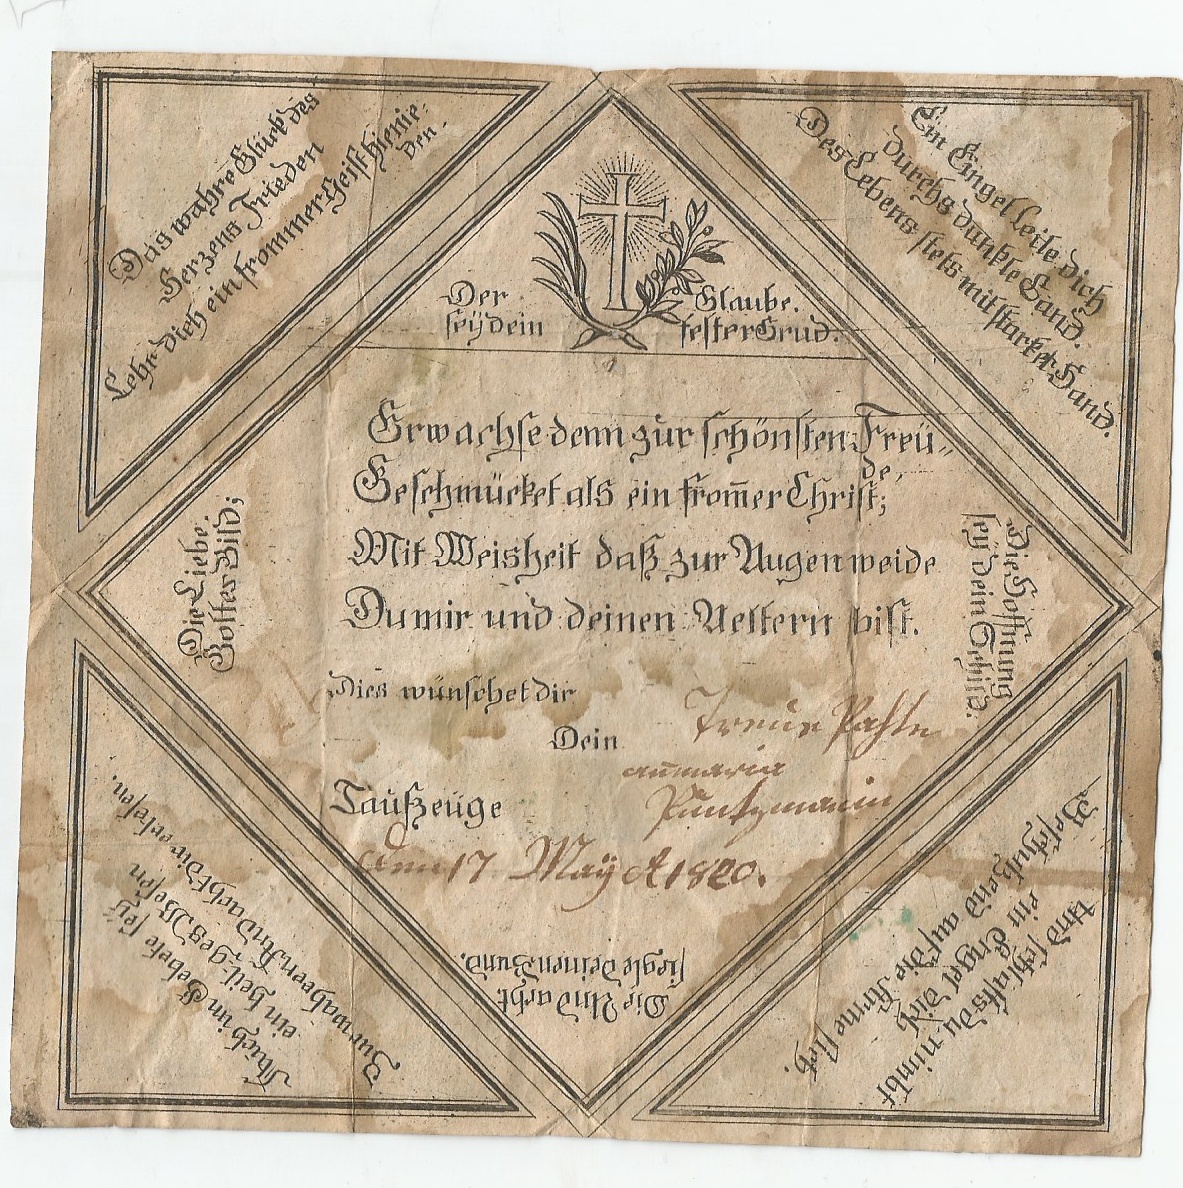 Das wahre Glück des
Herzens Frieden
Lehr dich ein frommer Geist hienie-
den.
Ein Eingel leite dich
durchs dunkle Land.
Des Lebens stets mit starker Hand.
Der Glaube.
seÿ dein fester Grud.
Erwachse denn zur schönsten Freü-
de,
Geschmücket als ein from̄er Christ;
Mit Weisheit daß zur Augenweide
Du mir und deinen Aeltern bist.
Die Liebe.
Gottes Bild;
Die Hoffnung
seÿ dein Schild.
Dies wünschet dir
Dein Treüe Pahtn
anmaria
Taufzeüge
den 17 Maÿ A 1820.
Die Andacht
siegle deinen Bund.
Auch im Gebete seÿ
ein heil-ges Wesen
Zur wahren Andacht dir erlesen.
Und schlafst du nimbt
ein Engel dich
Beschutzend auf die Arme sich.